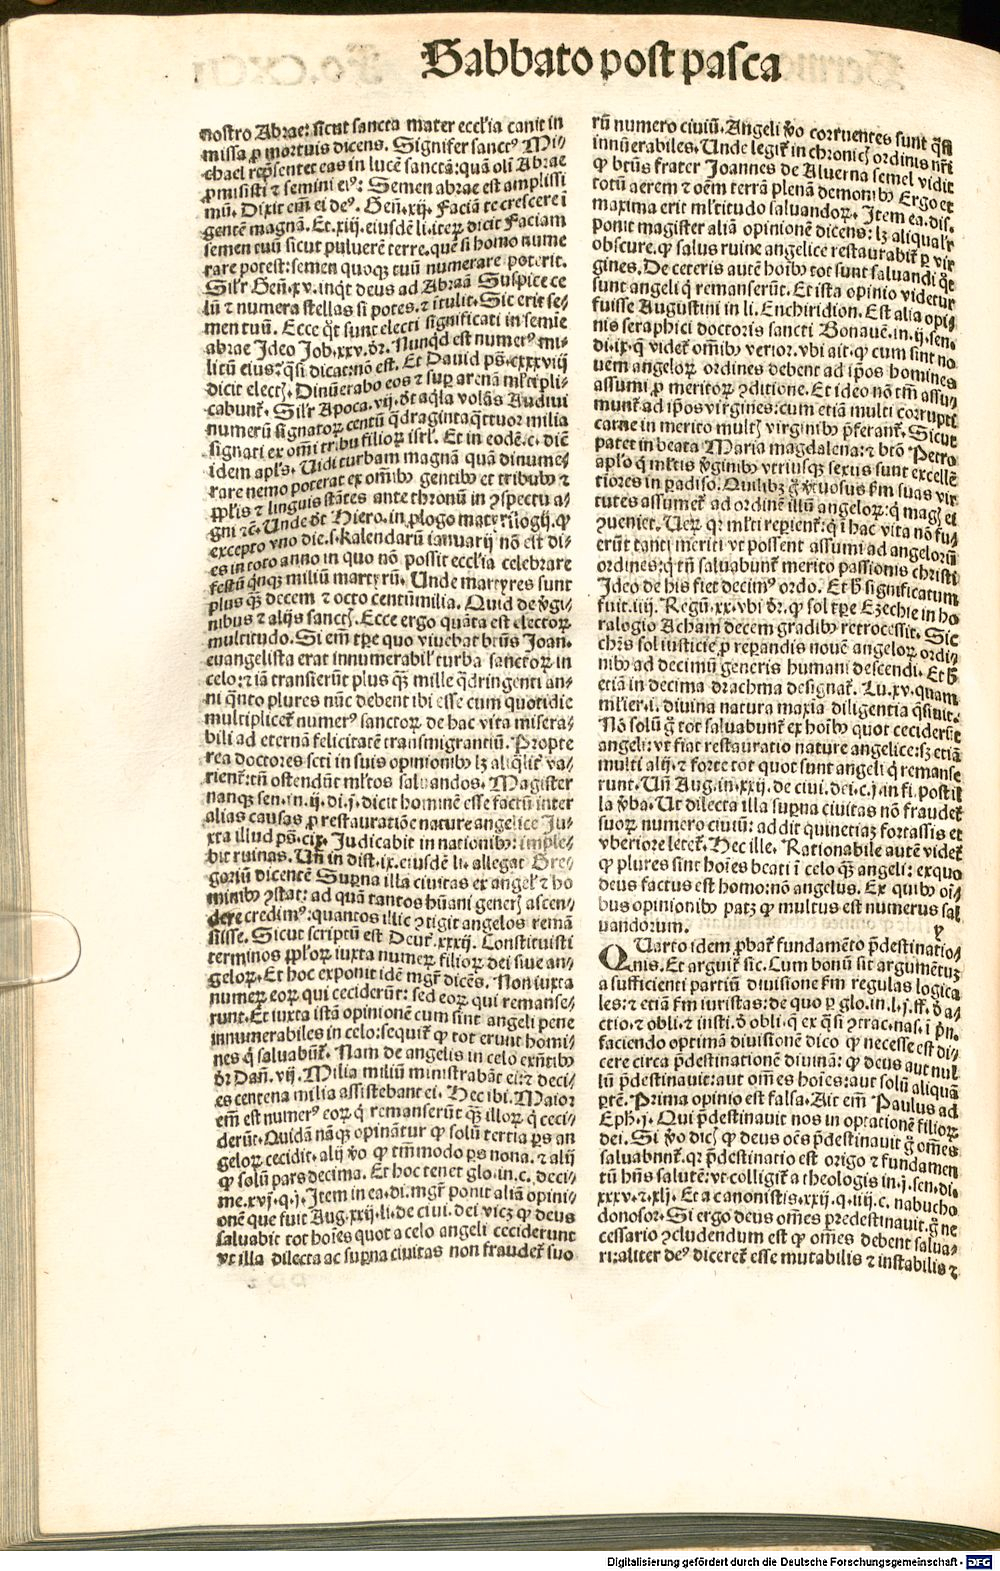 Sabbato post pasca
nostro Abrae: sicut sancta mater eccl'ia canit in
missa ꝓ mortuis dicens. Signifer sanctꝰ Mi-
chael rep̄sentet eas in lucē sanctā: quā oli Abrae
ꝓmisisti ⁊ semini eiꝰ: Semen abrae est amplissi
mū. Dixit em̄ ei deꝰ. Geñ.xij. Faciā te crescere ī
gentē magnā. Et.xiij. eiusdē li.iteꝝ dicit Faciam
semen tuū sicut puluerē terre. quē si homo nume
rare potest: semen quoqꝫ tuū numerare poterit.
Sil'r Geñ.xv. inqͥt deus ad Abraā Suspice ce
lū ⁊ numera stellas si potes. ⁊ ītulit. Sic erit se-
men tuū. Ecce qͥt sunt electi significati in semīe
abrae Ideo Job.xxv. dr̄. Nunqͥd est numerꝰ mi-
litū eius: qͣsi dicat: nō est. Et Dauid ps̄.cxxxviij
dicit electꝭ. Dinūerabo eos ⁊ suꝑ arenā ml'tipli-
cabunt̄. Sil'r Apoca.vij. dt̄ aqͥla volās Audiui
numerū signatoꝝ centū qͣdragintaqͣttuor milia
signati ex om̄i tribu filioꝝ isrl'. Et in eodē.c. diē
idem apl's. Uidi turbam magnā quā dinume-
rare nemo poterat ex om̄ibꝰ gentibꝰ et tribubꝰ ⁊
ppl'is ⁊ linguis stātes ante thronū in ꝯspectu a-
gni ⁊c̄. Unde dt̄ Hiero. in ꝓlogo martyrilogij. ꝙ
excepto vno die.s. Kalendarū ianuarij nō est di-
es in toto anno in quo nō possit eccl'ia celebrare
festū qͥnqꝫ miliū martyrū. Unde martyres sunt
plus qͣꝫ decem ⁊ octo centūmilia. Quid de v̄gi-
nibus ⁊ alijs sanctꝭ. Ecce ergo quāta est electoꝝ
multitudo. Si em̄ tꝑe quo viuebat btūs Joan.
euangelista erat innumerabil' turba sanctoꝝ in
celo: ⁊ iā transierūt plus qͣꝫ mille qͣdringenti an-
ni qͣnto plures nūc debent ibi esse cum quotidie
multiplicet̄ numerꝰ sanctoꝝ de hac vita misera-
bili ad eternā felicitatē transmigrantiū. Propte
rea doctores scti in suis opinionibꝰ lꝫ aliqͣlit̄ va-
rient̄: tn̄ ostendūt ml'tos saluandos. Magister
nanqꝫ sen. in.ij.di.j. dicit hominē esse factū inter
alias causas ꝓ restauratiōe nature angelice Ju-
xta illud ps̄.cix. Judicabit in nationibꝰ: imple-
bit ruinas. Un̄ in dist.ix. eiusdē li. allegat Gre-
goriū dicentē Suꝑna illa ciuitas ex angel' ⁊ ho
minibꝰ ꝯstat: ad quā tantos hūani generꝭ ascen-
dere credimꝰ: quantos illic ꝯtigit angelos remā
sisse. Sicut scriptū est Deut̄.xxxij. Constituisti
terminos ppl'oꝝ iuxta numeꝝ filioꝝ dei siue an-
geloꝝ. Et hoc exponit idē mgr̄ dicēs. Non iuxta
numeꝝ eoꝝ qui ceciderūt: sed eoꝝ qui remanse-
runt. Et iuxta istā opinionē cum sint angeli pene
innumerabiles in celo: sequit̄ ꝙ tot erunt homi-
nes qͥ saluabūt̄. Nam de angelis in celo exn̄tibꝰ
dr̄ Dañ.vij. Milia miliū ministrabāt ei: ⁊ deci-
es centena milia assistebant ei. Hec ibi. Maior
em̄ est numerꝰ eoꝝ qͥ remanserūt qͣꝫ illoꝝ qͥ ceci-
derūt. Quidā nāqꝫ opinātur ꝙ solū tertia ꝑs an
geloꝝ cecidit. alij v̄o ꝙ tm̄modo ꝑs nona. ⁊ alij
ꝙ solū pars decima. Et hoc tenet glo. in.c. deci-
me.xvj.q.j. Item in ea.di. mgr̄ ponit aliā opini-
onē que fuit Aug.xxij.li. de ciui. dei vicꝫ ꝙ deus
saluabit tot hoīes quot a celo angeli ceciderunt
vt illa dilecta ac suꝑna ciuitas non fraudet̄ suo
rū numero ciuiū. Angeli v̄o corruentes sunt qͣsi
innūerabiles. Unde legit̄ in chronicꝭ ordinis nr̄i
ꝙ btūs frater Joannes de Aluerna semel vidit
totū aerem ⁊ oēm terrā plenā demonibꝰ Ergo et
maxima erit ml'titudo saluandoꝝ. Item ea.dis.
ponit magister aliā opinionē dicens: lꝫ aliqual'r
obscure. ꝙ salus ruine angelice restaurabit̄ ꝑ vir
gines. De ceteris autē hoībꝰ tot sunt saluandi qͦt
sunt angeli qͥ remanserūt. Et ista opinio videtur
fuisse Augustini in li. Enchiridion. Est alia opi-
nis seraphici doctoris sancti Bonauē. in.ij.sen-
di.ix. q̄ videt̄ om̄ibꝰ verior. vbi ait. ꝙ cum sint no
uem angeloꝝ ordines debent ad ip̄os homines
assumi ꝓ meritoꝝ ꝯditione. Et ideo nō tm̄ assu-
munt̄ ad ip̄os virgines: cum etiā multi corrupti
carne in merito multꝭ virginibꝰ p̄ferant̄. Sicut
patet in beata Maria magdalena: ⁊ btō Petro
apl'o qͥ ml'tis v̄ginibꝰ vtriusqꝫ sexus sunt excellē
tiores in padiso. Quilibꝫ g̊ v̄tuosus s̄m suas vir
tutes assumet̄ ad ordinē illū angeloꝝ: q̄ magꝭ ei
ꝯueniet. Ueꝝ qꝛ ml'ti repient̄: qͥ ī hac vita nō fu-
erūt tanti meriti vt possent assumi ad angelorū
ordines: qͥ tn̄ saluabunt̄ merito passionis christi
Ideo de his fiet decimꝰ ordo. Et h̄ significatum
fuit.iiij. Regū.xx. vbi dr̄. ꝙ sol tꝑe Ezechie in ho
ralogio Acham decem gradibꝰ retrocessit. Sic
chrs̄ sol iusticie ꝓ reparandis nouē angeloꝝ ordi-
nibꝰ ad decimū generis humani descendi. Et h̄
etiā in decima drachma designat̄. Lu.xv. quam
mlier.i. diuina natura maxīa diligentia qͣsiuit.
Nō solū g̊ tot saluabunt̄ ex hoībꝰ quot ceciderūt
angeli: vt fiat restauratio nature angelice: sꝫ etiā
multi alij. ⁊ forte tot quot sunt angeli qͥ remanse
runt. Un̄ Aug. in.xxij. de ciui. dei.c.j. in fi. post il
la v̄ba. Ut dilecta illa suꝑna ciuitas nō fraudet̄
suoꝝ numero ciuiū: addit quinetiaꝫ fortassis et
vberiore letet̄. Hec ille. Rationabile autē videt̄
ꝙ plures sint hoīes beati ī celo qͣꝫ angeli: ex quo
deus factus est homo: nō angelus. Ex quibꝰ oī-
bus opinionibꝰ patꝫ ꝙ multus est numerus sal
uandorum. y
QUarto idem ꝓbat̄ fundamēto p̄destinatio-
nis. Et arguit̄ sic. Cum bonū sit argumētuꝫ
a sufficienti partiū diuisione s̄m regulas logica
les: ⁊ etiā s̄m iuristas: de quo ꝑ glo. in.l.j.ff. d̄ a-
ctio. ⁊ obli. ⁊ insti. d̄ obli. q̄ ex qͣsi ꝯtrac. nas. ī pn̄.
faciendo optimā diuisionē dico ꝙ necesse est di-
cere circa p̄destinationē diuinā: ꝙ deus aut nul
lū p̄destinauit: aut om̄es hoīes: aut solū aliquā
ꝑtē. Prima opinio est falsa. Ait em̄ Paulus ad
Eph.j. Qui p̄destinauit nos in optationē filioꝝ
dei. Si v̄o dicꝭ ꝙ deus oēs p̄destinauit g̊ om̄es
saluabunt̄. qꝛ p̄destinatio est origo ⁊ fundamen
tū hūs salutē: vt colligit̄ a theologis in.j.sen.di.
xxxv. ⁊.xlj. Et a canonistis.xxij.q.iiij.c. nabucho
donosor. Si ergo deus om̄es predestinauit. g̊ ne
cessario ꝯcludendum est ꝙ om̄es debent salua-
ri: aliter deꝰ diceret̄ esse mutabilis ⁊ instabilis ⁊
Digitalisierung gefördert durch die Deutsche Forschungsgemeinschaft - DFG